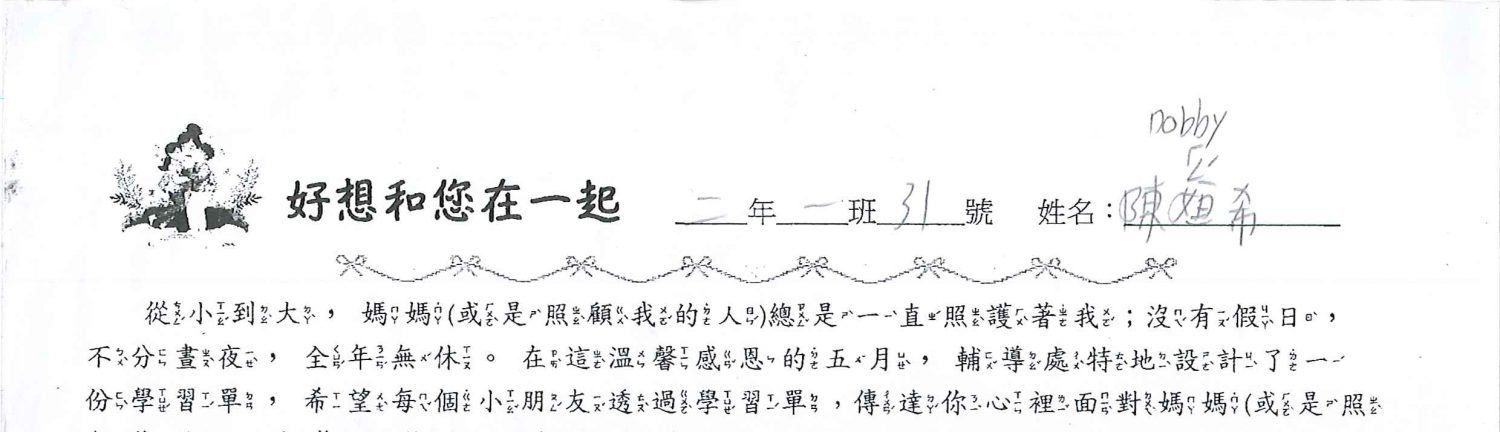 nobby
ㄏㄥˊ
好想和您在一起 二年一班31號 姓名：陳姮希
從小到大，媽媽(或是照顧我的人)總是一直照護著我；沒有假日，
不分晝夜，全年無休。在這溫馨感恩的五月，輔導處特地設計了一
份學習單，希望每個小朋友透過學習單，傳達你心裡面對媽媽(或是照